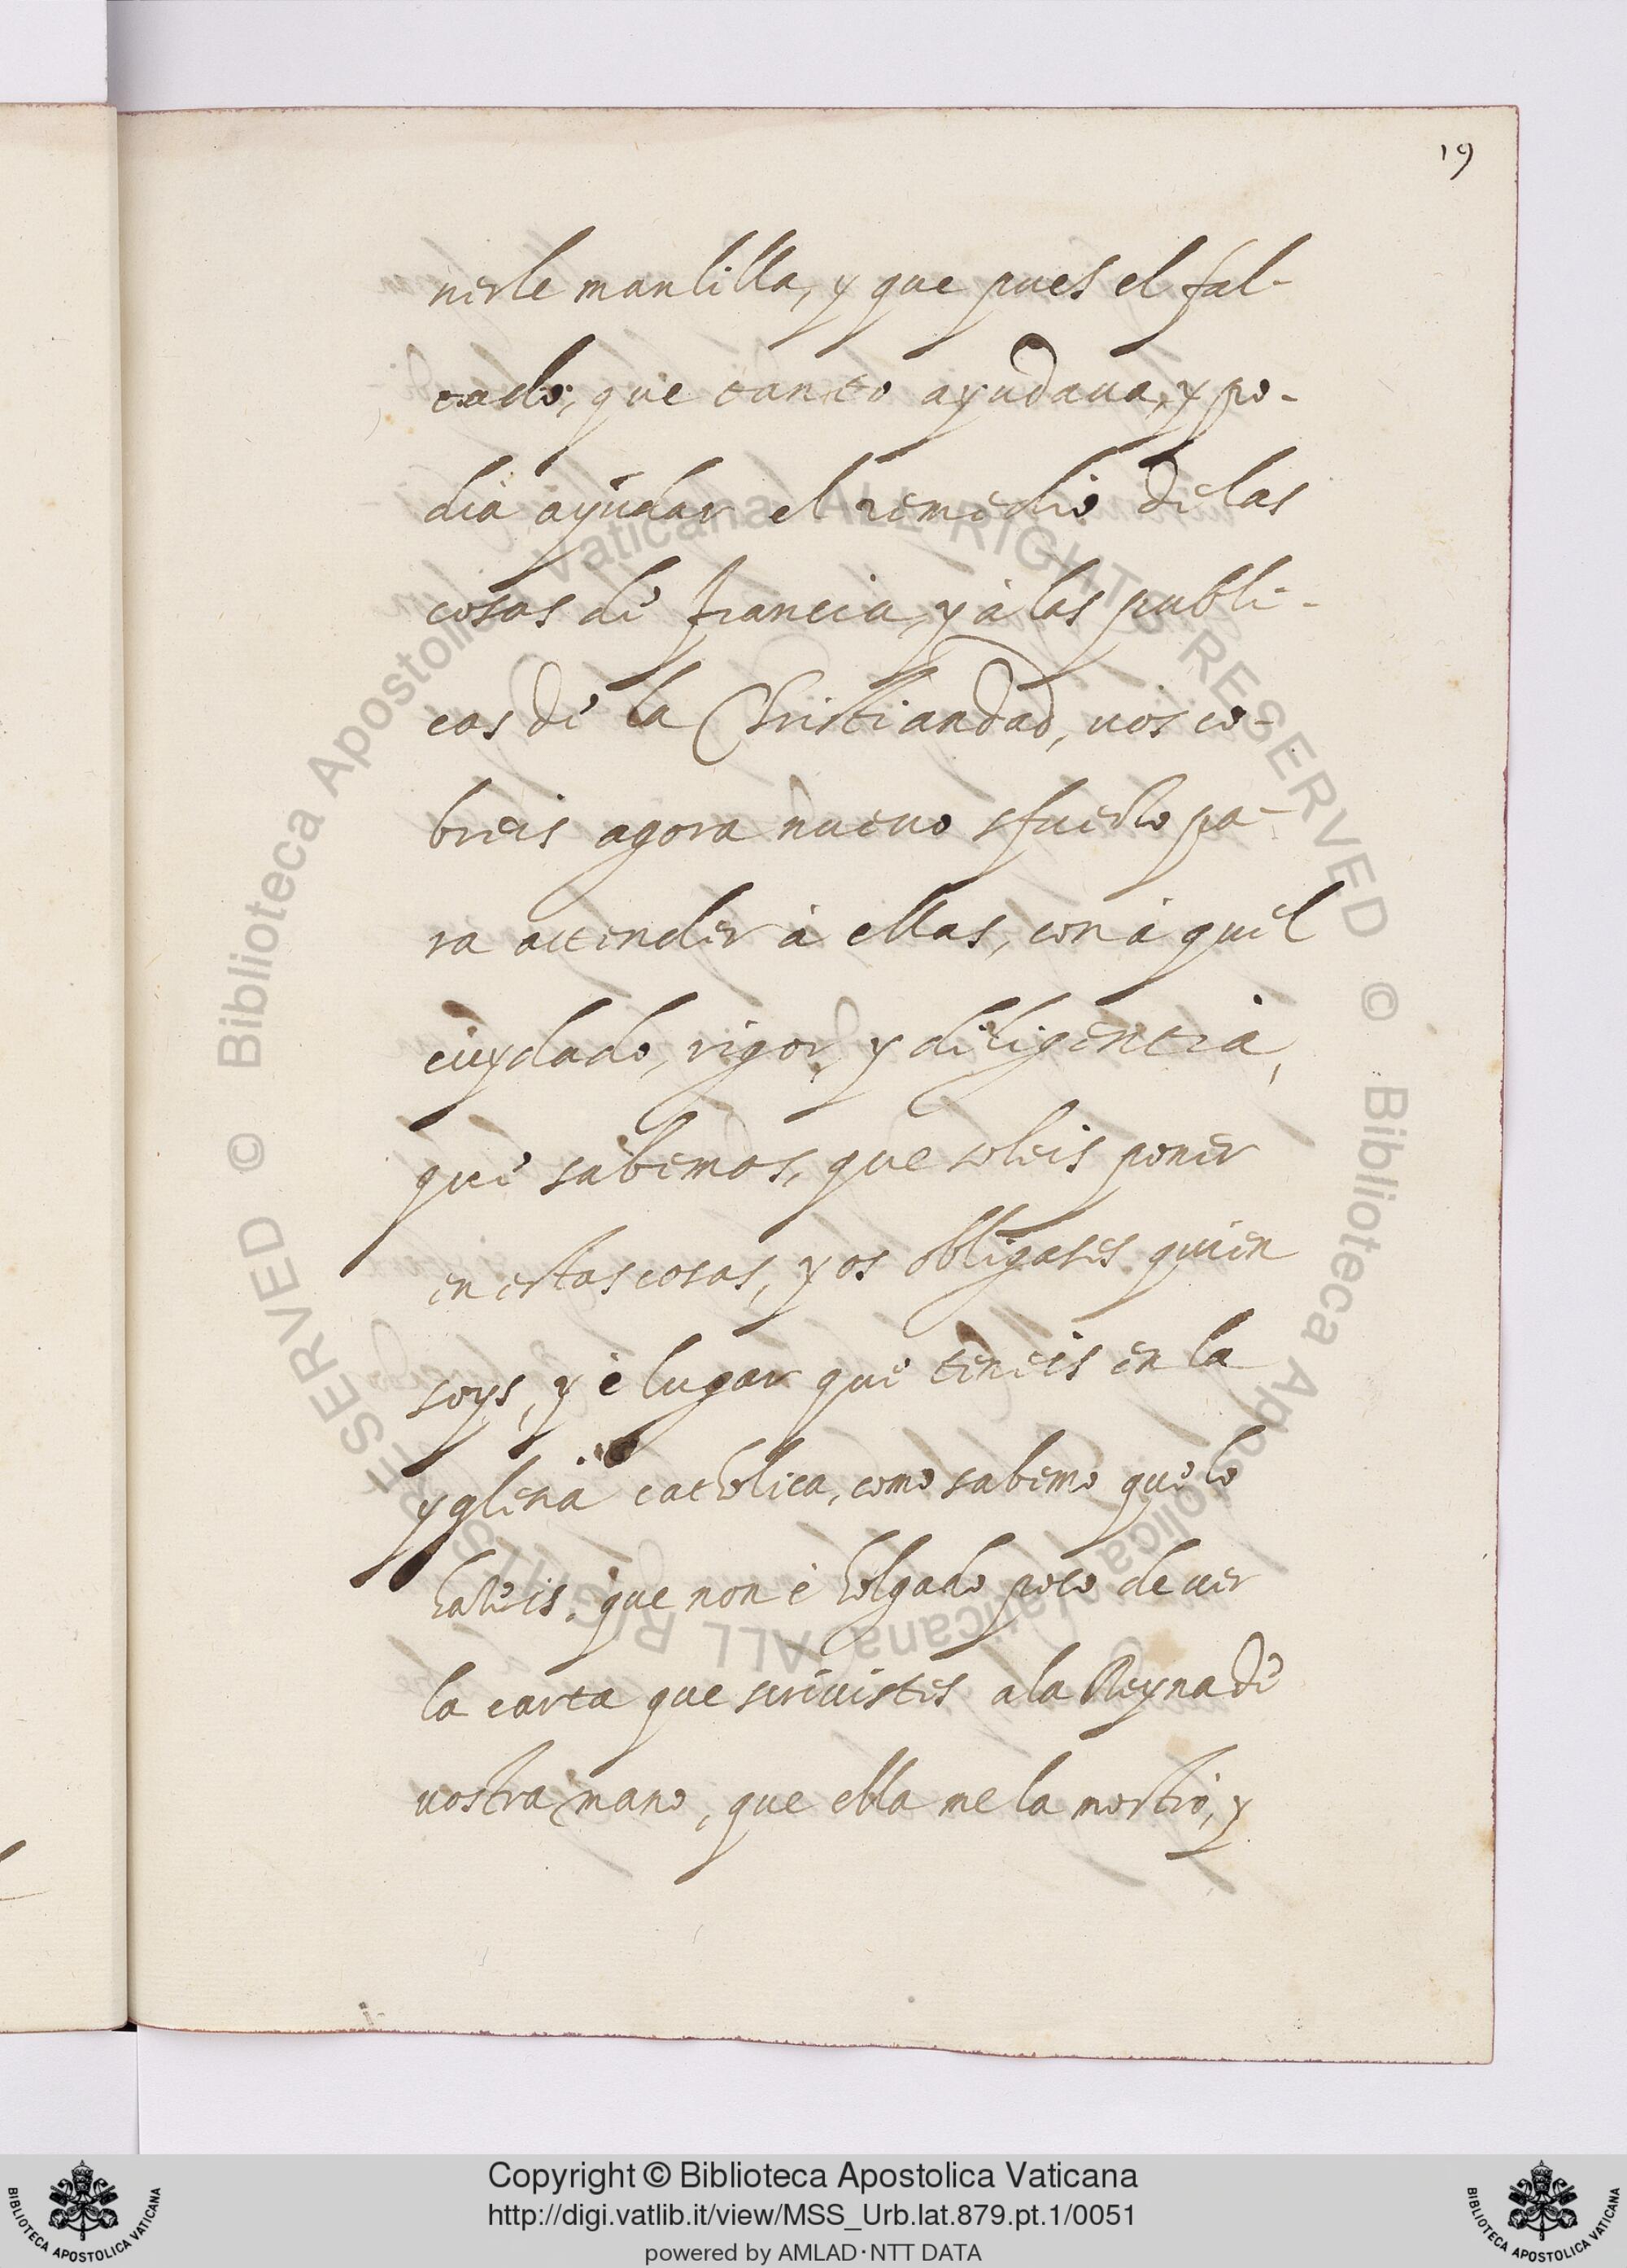 19
nerle manlilla, y que pues el fal-
tado, que tanto ayudaua, y po-
dia ayudar el remedio de las
cosas de francia, y à las publi-
cas de la Christiandad, uos co-
breis agora nueuo sfuerlo pa-
ra attender à ellas, con à quel
cuydado, rigor, y diligentia,
que sabemos, que soleis poner
en estas cosas, y os obligases quien
soys, y è lugar que teneis en la
yglesia catholica, como sabemo que lo
hareis. que non è holgado poco de uer
la carta que scriuistes a la Reyna de
uostra mano, que ella me la mostrò, y
© Biblioteca Apostolica Vaticana ALL RIGHTS RESERVED
© Biblioteca Apostolica Vaticana ALL RIGHTS RESERVED
Copyright © Biblioteca Apostolica Vaticana
http://digi.vatlib.it/view/MSS_Urb.lat.879.pt.1/0051
powered by AMLAD·NTT DATA
BIBLIOTECA APOSTOLICA VATICANA
BIBLIOTECA APOSTOLICA VATICANA